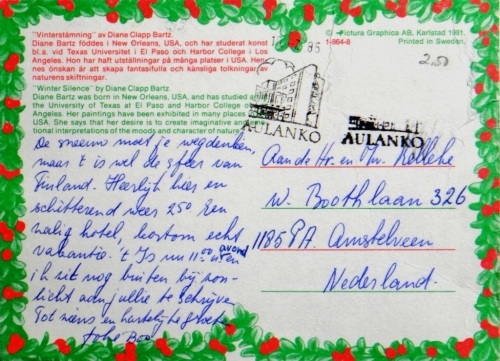 "Vinterstämning" av Diane Clapp Bartz.
Diane Bartz föddes i New Orleans, USA, och har studerat konst
bl.a. vid Texas Universitet i El Paso och Harbor College i Los
Angeles. Hon har haft utställningar på många platser i USA. Hen-
nes önskan är att skapa fantasifulla och känsliga tolkningar av
naturens skiftningar.
"Winter Silence" by Diane Clapp Bartz.
Diane Bartz was born in New Orleans, USA, and has studied
the University of Texas at El Paso and Harbor College
Angeles. Her paintings have been exhibited in many places
USA. She says that her desire is to create imaginative and
tional interpretations of the moods and character of nature.
© Pictura Graphica AB, Karlstad 1981.
1-864-8 Printed in Sweden.
2.50
85
AULANKO
AULANKO
De sneeuw moet je wegdenken,
maar 't is wel de sfeer van
Finland. Heerlijk hier en
schitterend weer 25°. Een
zalig hotel, kortom echt
vakantie. 't Is nu 11.00 avond
ik zit nog buiten bij zon-
licht aan jullie te schrijven
Tot ziens en hartelijke groeten
Aan de Hr. en Mw.
W. Boothlaan 326
1185 PA. Amstelveen
Nederland.